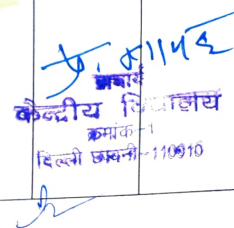 प्राचार्य
केन्द्रीय विद्यालय
क्रमांक-1
दिल्ली छावनी-110010